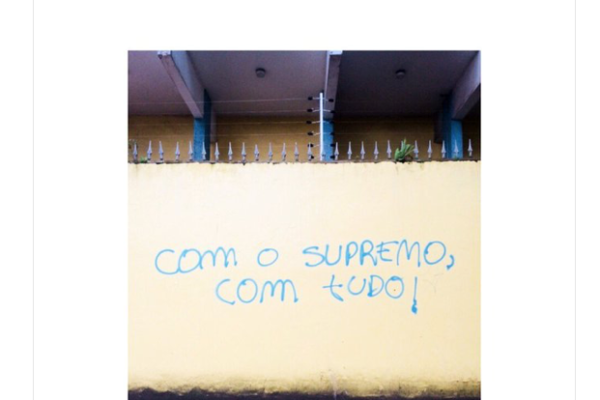 COM O SUPREMO,
COM tUDO!